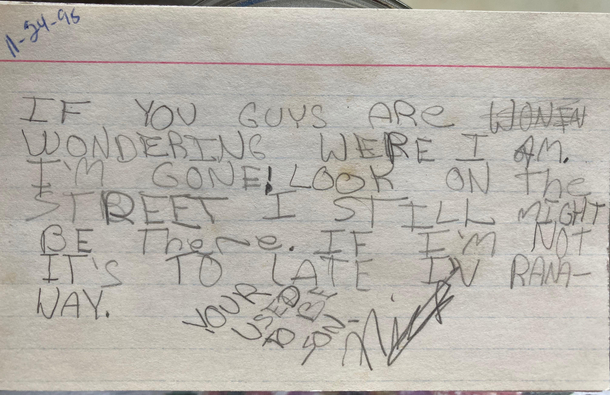 11-24-95
IF YOU GUYS ARE WONEN
WONDERING WERE I AM.
I'M GONE! LOOK ON The
STREET I STILL MIGHT
BE There. IF I'M NOT
IT'S TO LATE IV RANA-
WAY.
YOUR
USED
TO BE
SON-
Nick